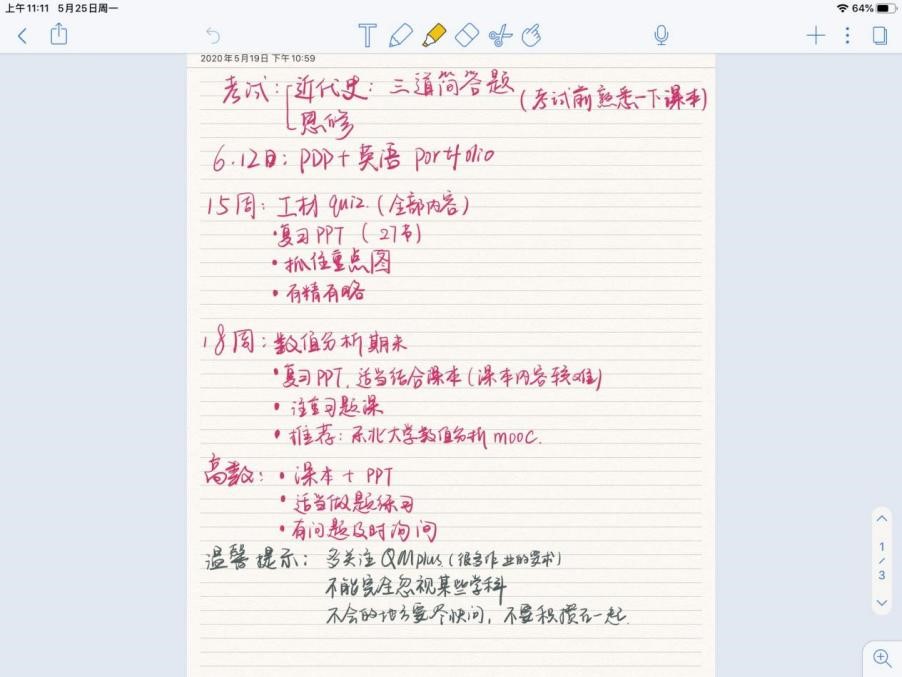 上午11:11 5月25日周一
64%
2020年5月19日 下午10:59
考试: 近代史: 三道简答题 (考试前熟悉一下课本)
思修
6.12日: PDP+ 英语 portfolio
15周: 工材 quiz. (全部内容)
·复习PPT (27节)
·抓住重点图
·有精有略
18周: 数值分析期末
·复习PPT, 适当结合课本 (课本内容较难)
·注重习题课
·推荐: 东北大学数值分析 mooc.
高数: ·课本 + PPT
·适当做题练习
·有问题及时询问
温馨提示: 多关注 QMplus (很多作业的要求)
不能完全忽视某些学科
不会的地方要尽快问, 不要积攒在一起.
1
/
3